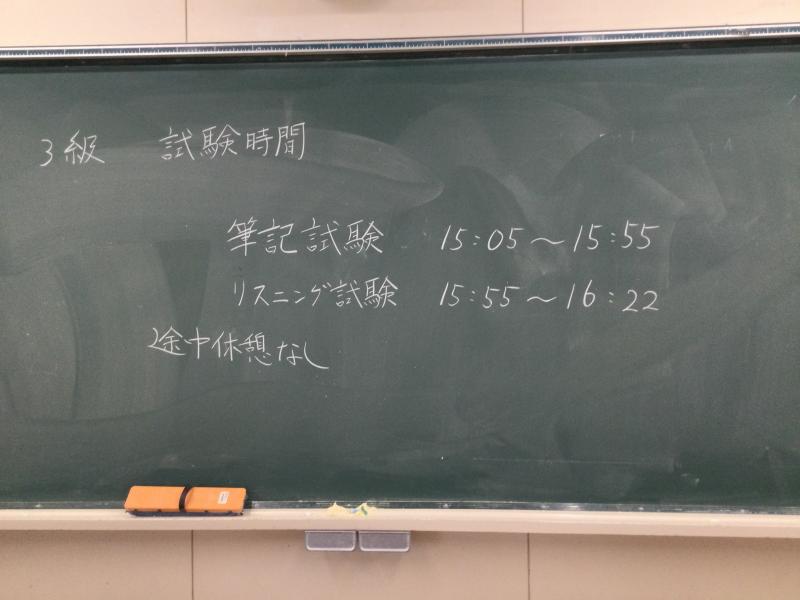 3級 試験時間
筆記試験 15:05～15:55
リスニング試験 15:55～16:22
途中休憩なし